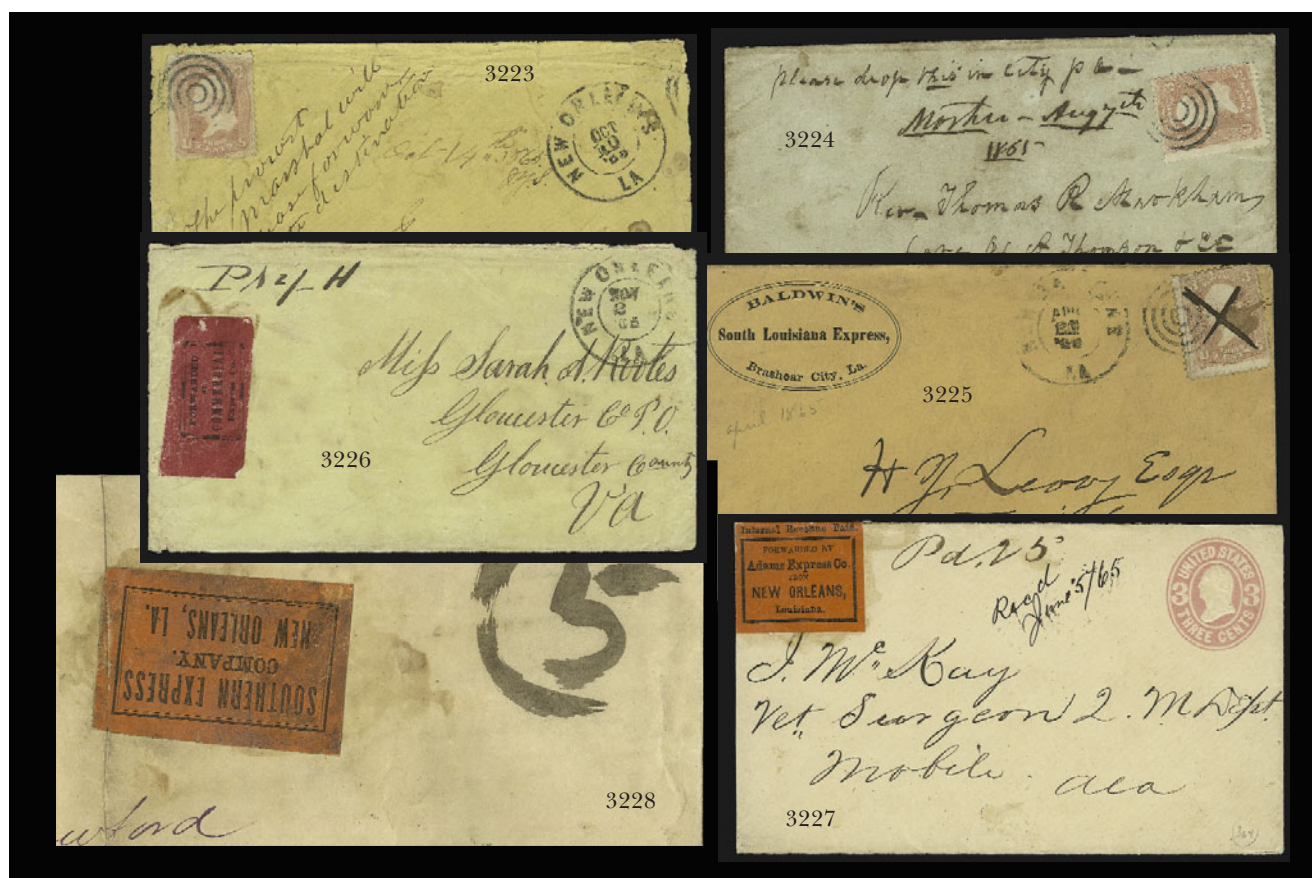 3223
the provost
marshal will
please forward
to destination
Oct 14
NEW ORLEANS
OCT
LA
please drop this in City p o
1865
3224
Rev. Thomas R Markham
Care
Thomson
3226
NEW ORLEANS
NOV
LA
FORWARDED BY
COMMERCIAL
Express Co.
Miss Sarah A. Rootes
Gloucester Co P.O.
Gloucester County
Va
BALDWIN'S
South Louisiana Express,
Brashear City, La.
LA
3225
april 1865
H J Leovy Esqr
SOUTHERN EXPRESS
COMPANY.
NEW ORLEANS, LA.
5
3228
Internal Revenue Paid.
FORWARDED BY
Adams Express Co.
FROM
NEW ORLEANS,
Louisiana.
Pd. 25
Recd
June 5/65
UNITED STATES
THREE CENTS
3
3
J. Mc Kay
Vet. Surgeon 2. M Dept.
Mobile Ala
3227